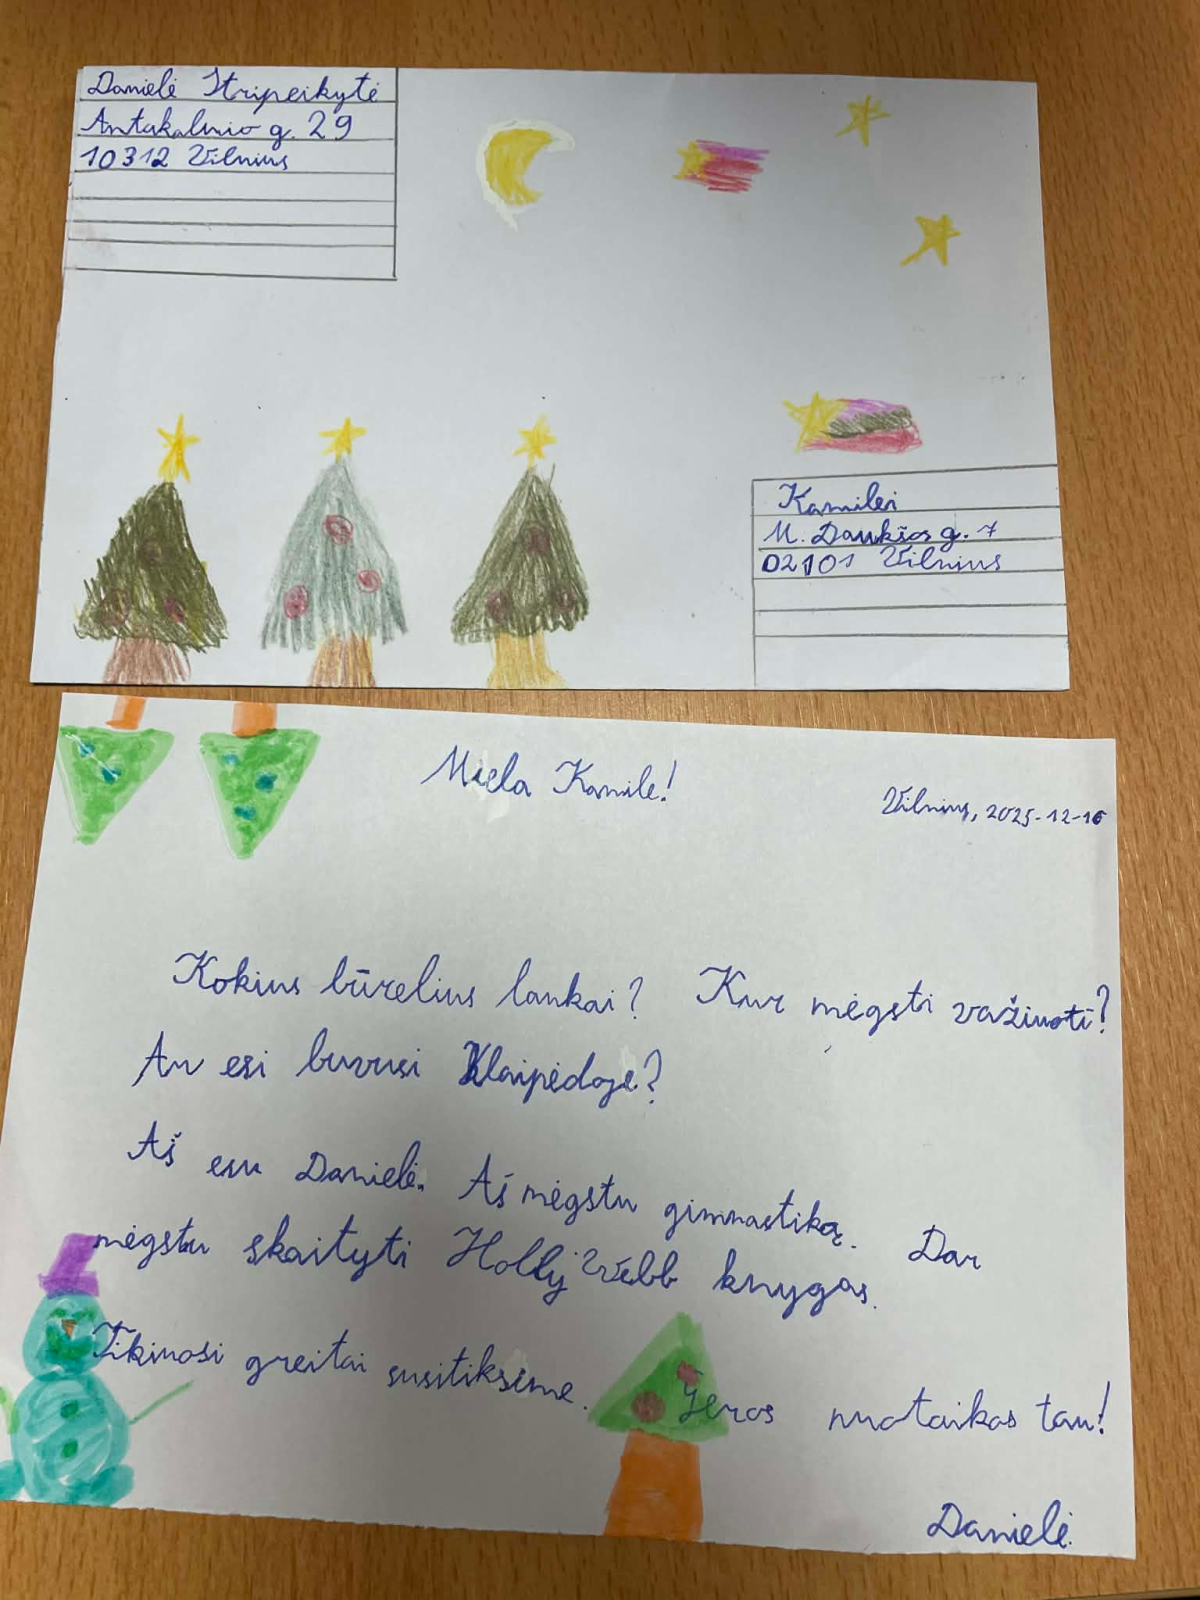 Danielė Stripeikytė
Antakalnio g. 29
10312 Vilnius
Kamilei
M. Daukšos g. 7
02101 Vilnius
Miela Kamile!
Vilnius, 2025-12-16
Kokius būrelius lankai? Kur mėgsti važiuoti?
Ar esi buvusi Klaipėdoje?
Aš esu Danielė. Aš mėgstu gimnastiką. Dar
mėgstu skaityti Holly Webb knygas.
Tikiuosi greitai susitiksime. Geros nuotaikos tau!
Danielė.